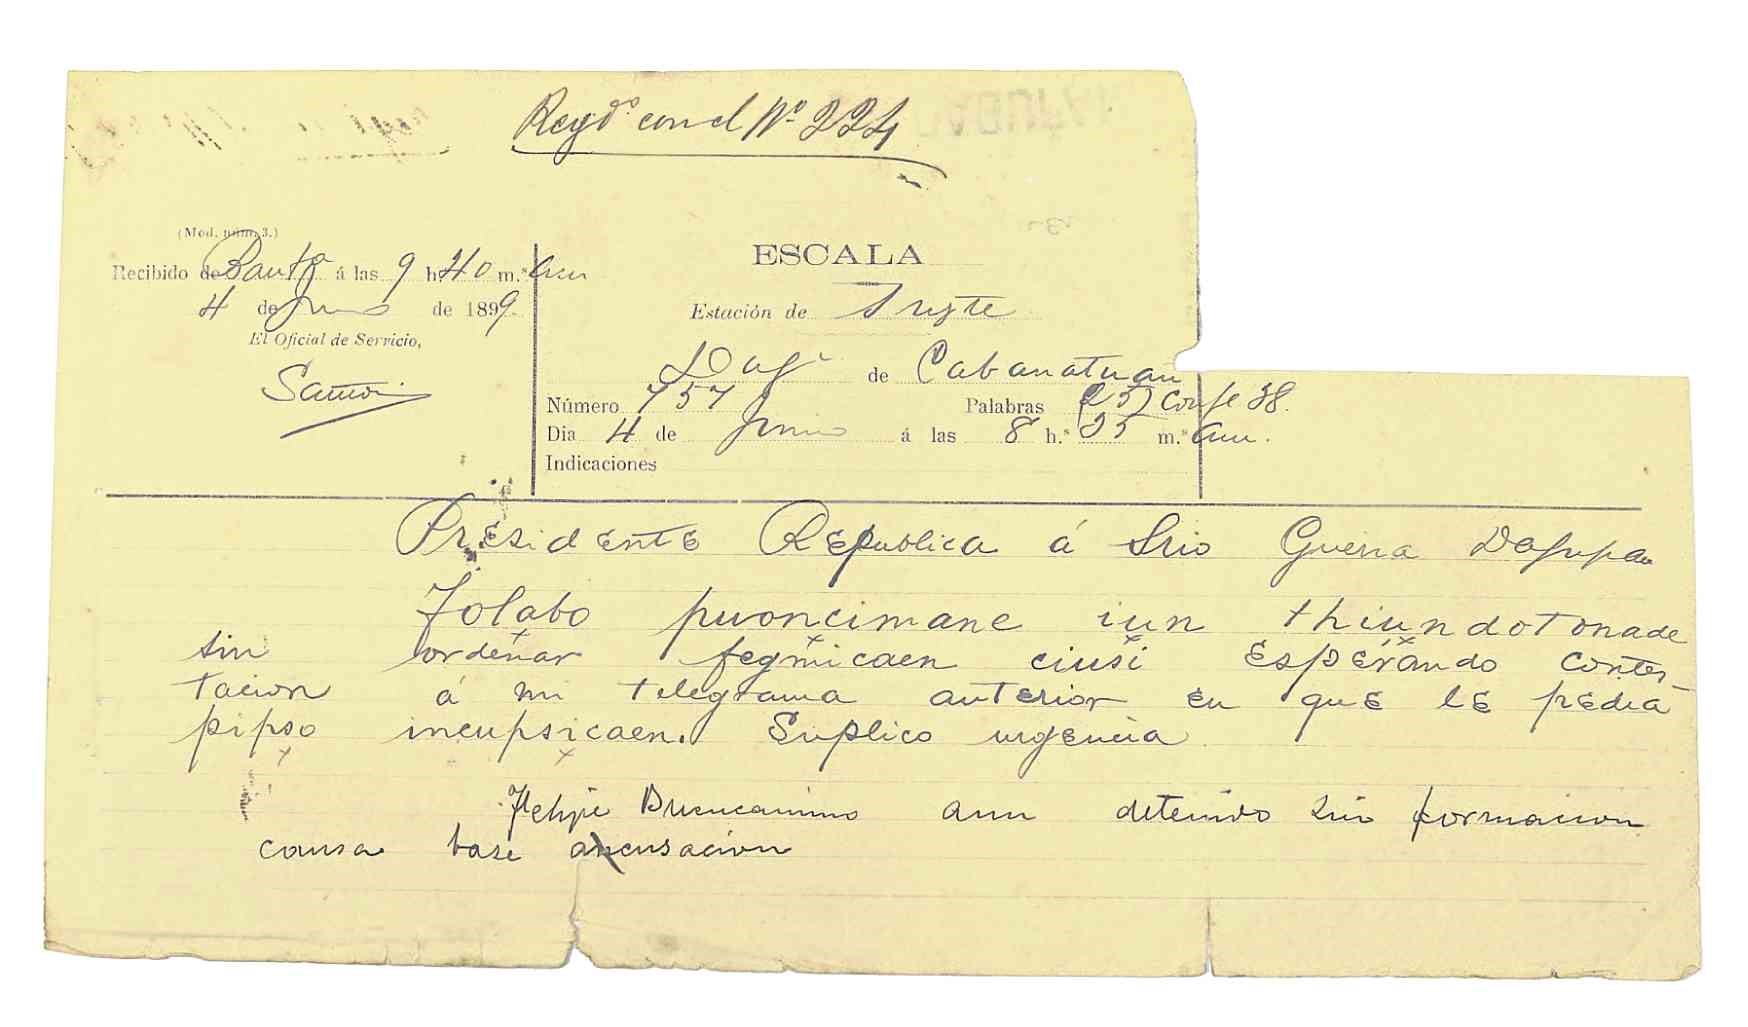 Regdo. con el No. 224
(Mod. núm. 3.)
Recibido de Bauta á las 9 h. 40 m.s am
4 de Junio de 1899.
El Oficial de Servicio,
ESCALA
Estación de
de Cabanatuan
Número 757 Palabras (25) 38.
Dia 4 de Junio á las 8 h.s 25 m.s am.
Indicaciones
Presidente Republica á Srio Guerra Dagupan
Folabo puoncimane iun thiundotonade
sin ordenar fegmicaen ciusi esperando contes-
tacion á mi telegrama anterior en que le pedia
pipso incupsicaen. Suplico urgencia
Felipe Buencamino aun detenido sin formacion
causa base acusacion